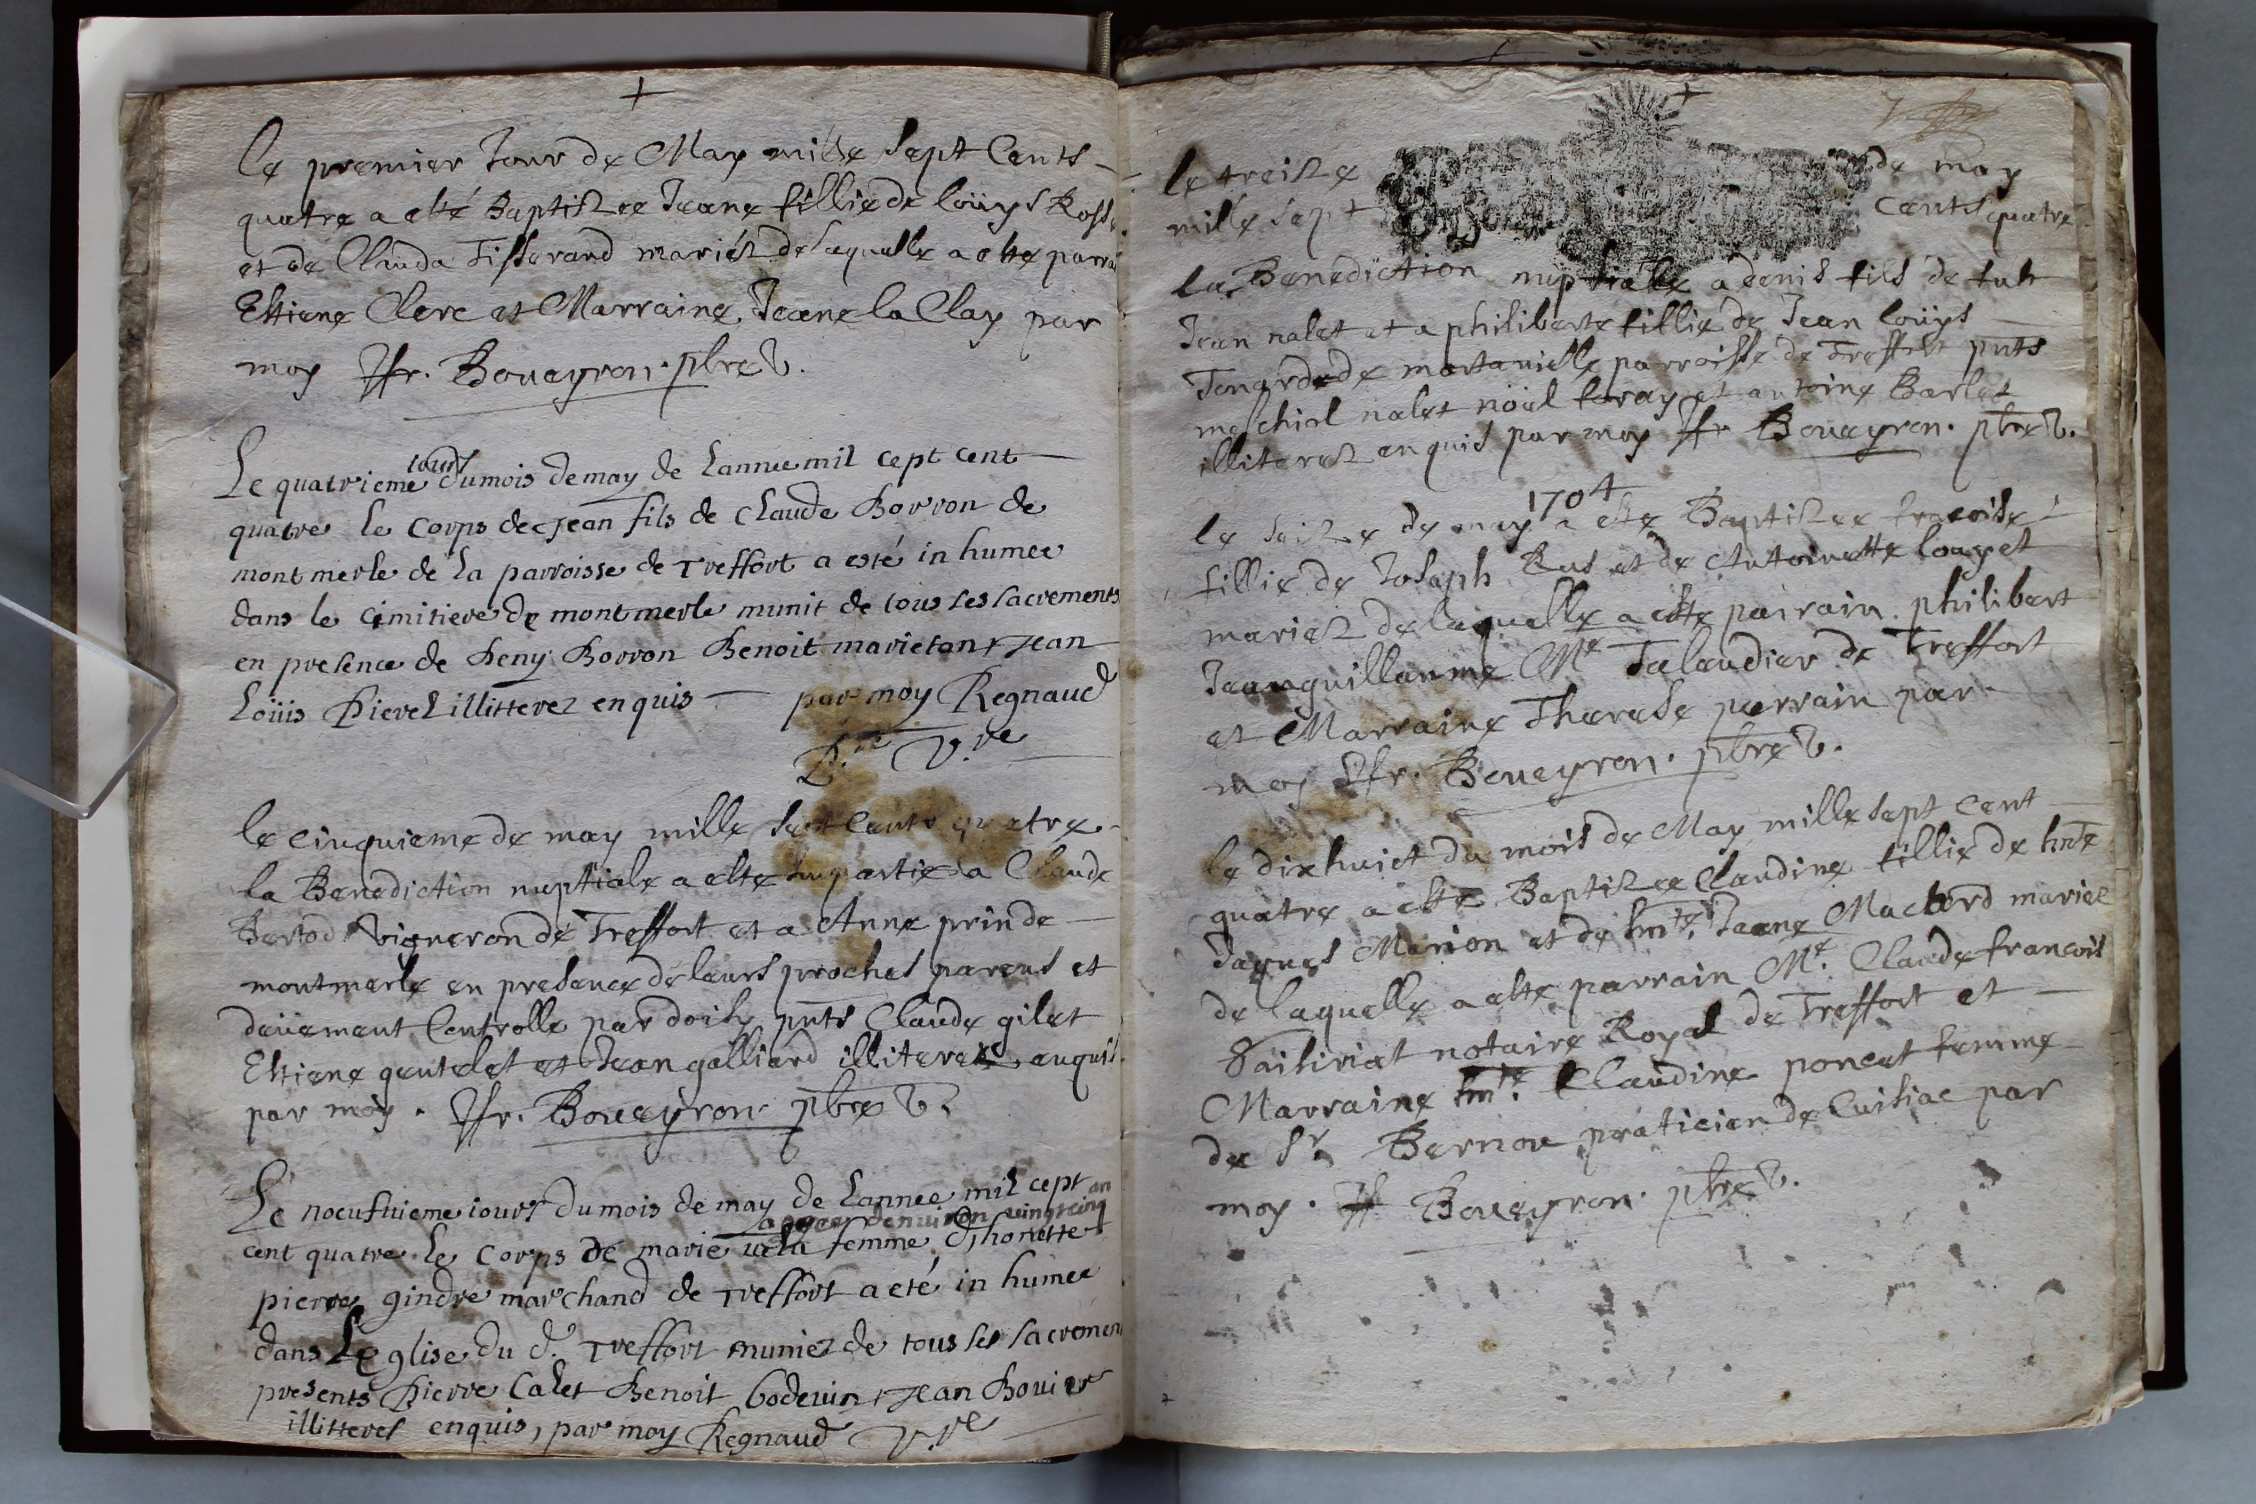 Le premier Jour de May mille Sept Cents
quatre a esté Baptizee Jeane fillie de loüys
et de Clauda Tisserand mariéz de laquelle a este parrai
Estiene Clerc et Marraine Jeane la Clay par
moy Jfr. Boueyron. pbre V.
Le quatrieme iour du mois de may de Lannee mil cept cent
quatre le Corps de Jean fils de Claude Borron de
montmerle de la parroisse de Treffort a esté in humee
dans le Cimitiere de montmerle munit de tous les sacrements
en presence de Deny Borron Benoit marieton, Jean
Loüis illitterez enquis par moy Regnaud
V.re
le cinquieme de may mille Sept Cents quatre
la Benediction nuptiale a este Impartie a Claude
Bertod vigneron de Treffort et a Anne prin de
montmerle en presence de leurs proches parens et
deüement Controlle par doisy pnts Claude gilet
Estiene gentelet et Jean galliard illiterez enquis
par moy. Jfr. Boueyron pbre V.
Le noeufuieme iours du mois de may de Lannee mil cept
aagee denuiron vingt cinq an
cent quatre le Corps de marie femme Dhonette
pierre gindre marchand de Treffort a eté in humee
dans Leglise du d. Treffort muniez de tous les sacremen
presents Pierre Calet Benoit bodeuin, Jean Bouier
illitteres enquis, par moy Regnaud V.re
le treize de may
mille sept Cents quatre
la Benediction nuptialle a denis fils de fut
Jean nalet et a philiberte fillie de Jean loüys
de parroisse de Treffort pnts
nalet nöel foray et antoine Barlet
illiterez enquis par moy Jfr Boueyron. pbre V.
1704
le Seize de may a este Baptizee francoise
fillie de Joseph Rus et de Antoinette louyet
mariez de laquelle a este pairain philibert
Jeanguillaume Me Talaudier de Treffort
et Marraine Therese perrain par
moy Jfr. Boueyron. pbre V.
le dixhuict du mois de May mille sept Cent
quatre a este Baptizee Claudine fillie de hnte
Jaques Marion et de hnte. Jeane Machord mariez
de laquelle a este parrain Me. Claude francois
notaire Royal de Treffort et
Marraine hnte. Claudine poncet femme
de Sr Bernou praticien de Cuisiac par
moy. Jf Boueyron. pbre V.